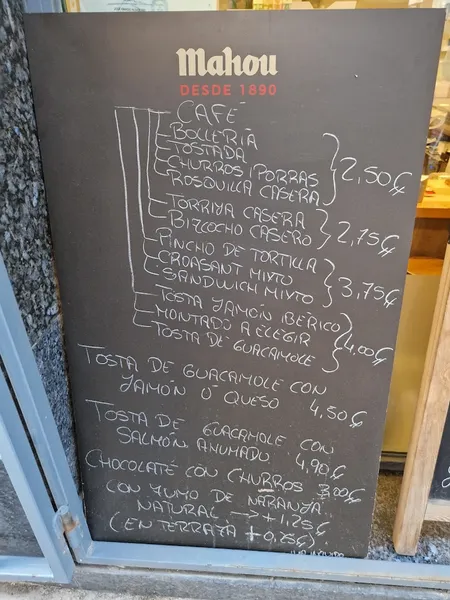 Mahou
DESDE 1890
CAFÉ
BOLLERÍA
TOSTADA
CHURROS/PORRAS
ROSQUILLA CASERA
2,50€
TORRIJA CASERA
BIZCOCHO CASERO
2,75€
PINCHO DE TORTILLA
CROASANT MIXTO
SANDWICH MIXTO
3,75€
TOSTA JAMÓN IBÉRICO
MONTADO A ELEGIR
TOSTA DE GUACAMOLE
4,00€
TOSTA DE GUACAMOLE CON
JAMÓN Ó QUESO 4,50€
TOSTA DE GUACAMOLE CON
SALMÓN AHUMADO 4,90€
CHOCOLATE CON CHURROS 3,00€
CON ZUMO DE NARANJA
NATURAL → + 1,25€
(EN TERRAZA + 0,25€)
IVA INCLUIDO